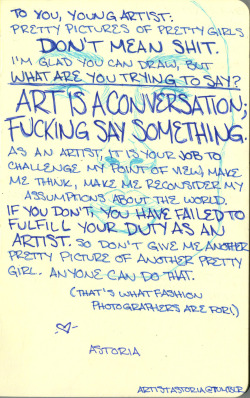 TO YOU, YOUNG ARTIST:
PRETTY PICTURES OF PRETTY GIRLS
DON'T MEAN SHIT.
I'M GLAD YOU CAN DRAW, BUT
WHAT ARE YOU TRYING TO SAY?
ART IS A CONVERSATION,
FUCKING SAY SOMETHING.
AS AN ARTIST, IT IS YOUR JOB TO
CHALLENGE MY POINT OF VIEW, MAKE
ME THINK, MAKE ME RECONSIDER MY
ASSUMPTIONS ABOUT THE WORLD.
IF YOU DON'T, YOU HAVE FAILED TO
FULFILL YOUR DUTY AS AN
ARTIST. SO DON'T GIVE ME ANOTHER
PRETTY PICTURE OF ANOTHER PRETTY
GIRL. ANYONE CAN DO THAT.
(THAT'S WHAT FASHION
PHOTOGRAPHERS ARE FOR!)
♡-
ASTORIA
ARTISTASTORIA@TUMBLR